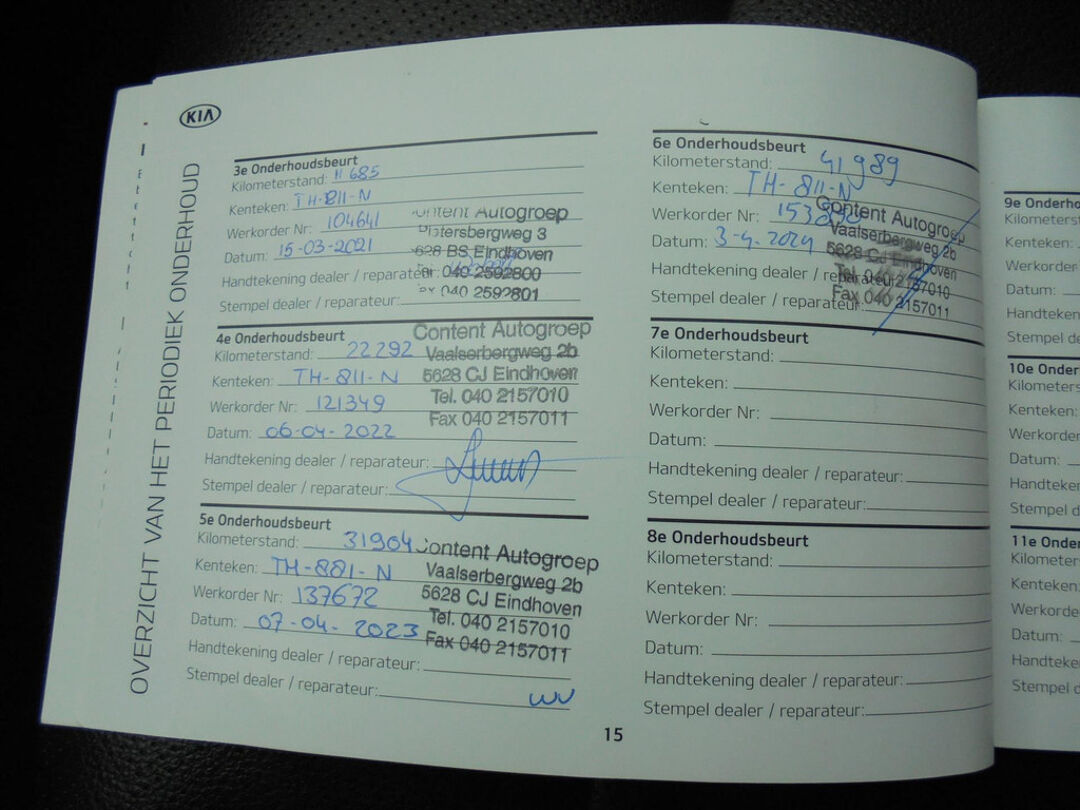 KIA
OVERZICHT VAN HET PERIODIEK ONDERHOUD
3e Onderhoudsbeurt
Kilometerstand: 11685
Kenteken: TH-811-N
Werkorder Nr: 104641
Datum: 15-03-2021
Handtekening dealer / reparateur:
Stempel dealer / reparateur:
Content Autogroep
Pietersbergweg 3
5628 BS Eindhoven
Tel. 040 2592800
Fax 040 2592801
4e Onderhoudsbeurt
Kilometerstand: 22292
Kenteken: TH-811-N
Werkorder Nr: 121349
Datum: 06-04-2022
Handtekening dealer / reparateur:
Stempel dealer / reparateur:
Content Autogroep
Vaalserbergweg 2b
5628 CJ Eindhoven
Tel. 040 2157010
Fax 040 2157011
5e Onderhoudsbeurt
Kilometerstand: 31904
Kenteken: TH-881-N
Werkorder Nr: 137672
Datum: 07-04-2023
Handtekening dealer / reparateur:
Stempel dealer / reparateur:
Content Autogroep
Vaalserbergweg 2b
5628 CJ Eindhoven
Tel. 040 2157010
Fax 040 2157011
6e Onderhoudsbeurt
Kilometerstand: 41989
Kenteken: TH-811-N
Werkorder Nr:
Datum: 3-4-2024
Handtekening dealer / reparateur:
Stempel dealer / reparateur:
Content Autogroep
Vaalserbergweg 2b
5628 CJ Eindhoven
Tel. 040 2157010
Fax 040 2157011
7e Onderhoudsbeurt
Kilometerstand:
Kenteken:
Werkorder Nr:
Datum:
Handtekening dealer / reparateur:
Stempel dealer / reparateur:
8e Onderhoudsbeurt
Kilometerstand:
Kenteken:
Werkorder Nr:
Datum:
Handtekening dealer / reparateur:
Stempel dealer / reparateur:
15
9e Onderho
Kilometerst
Kenteken:
Werkorder
Datum:
Handteken
Stempel de
10e Onder
Kilometers
Kenteken:
Werkorder
Datum:
Handteke
Stempel d
11e Onder
Kilometer
Kenteken:
Werkorde
Datum:
Handteke
Stempel d